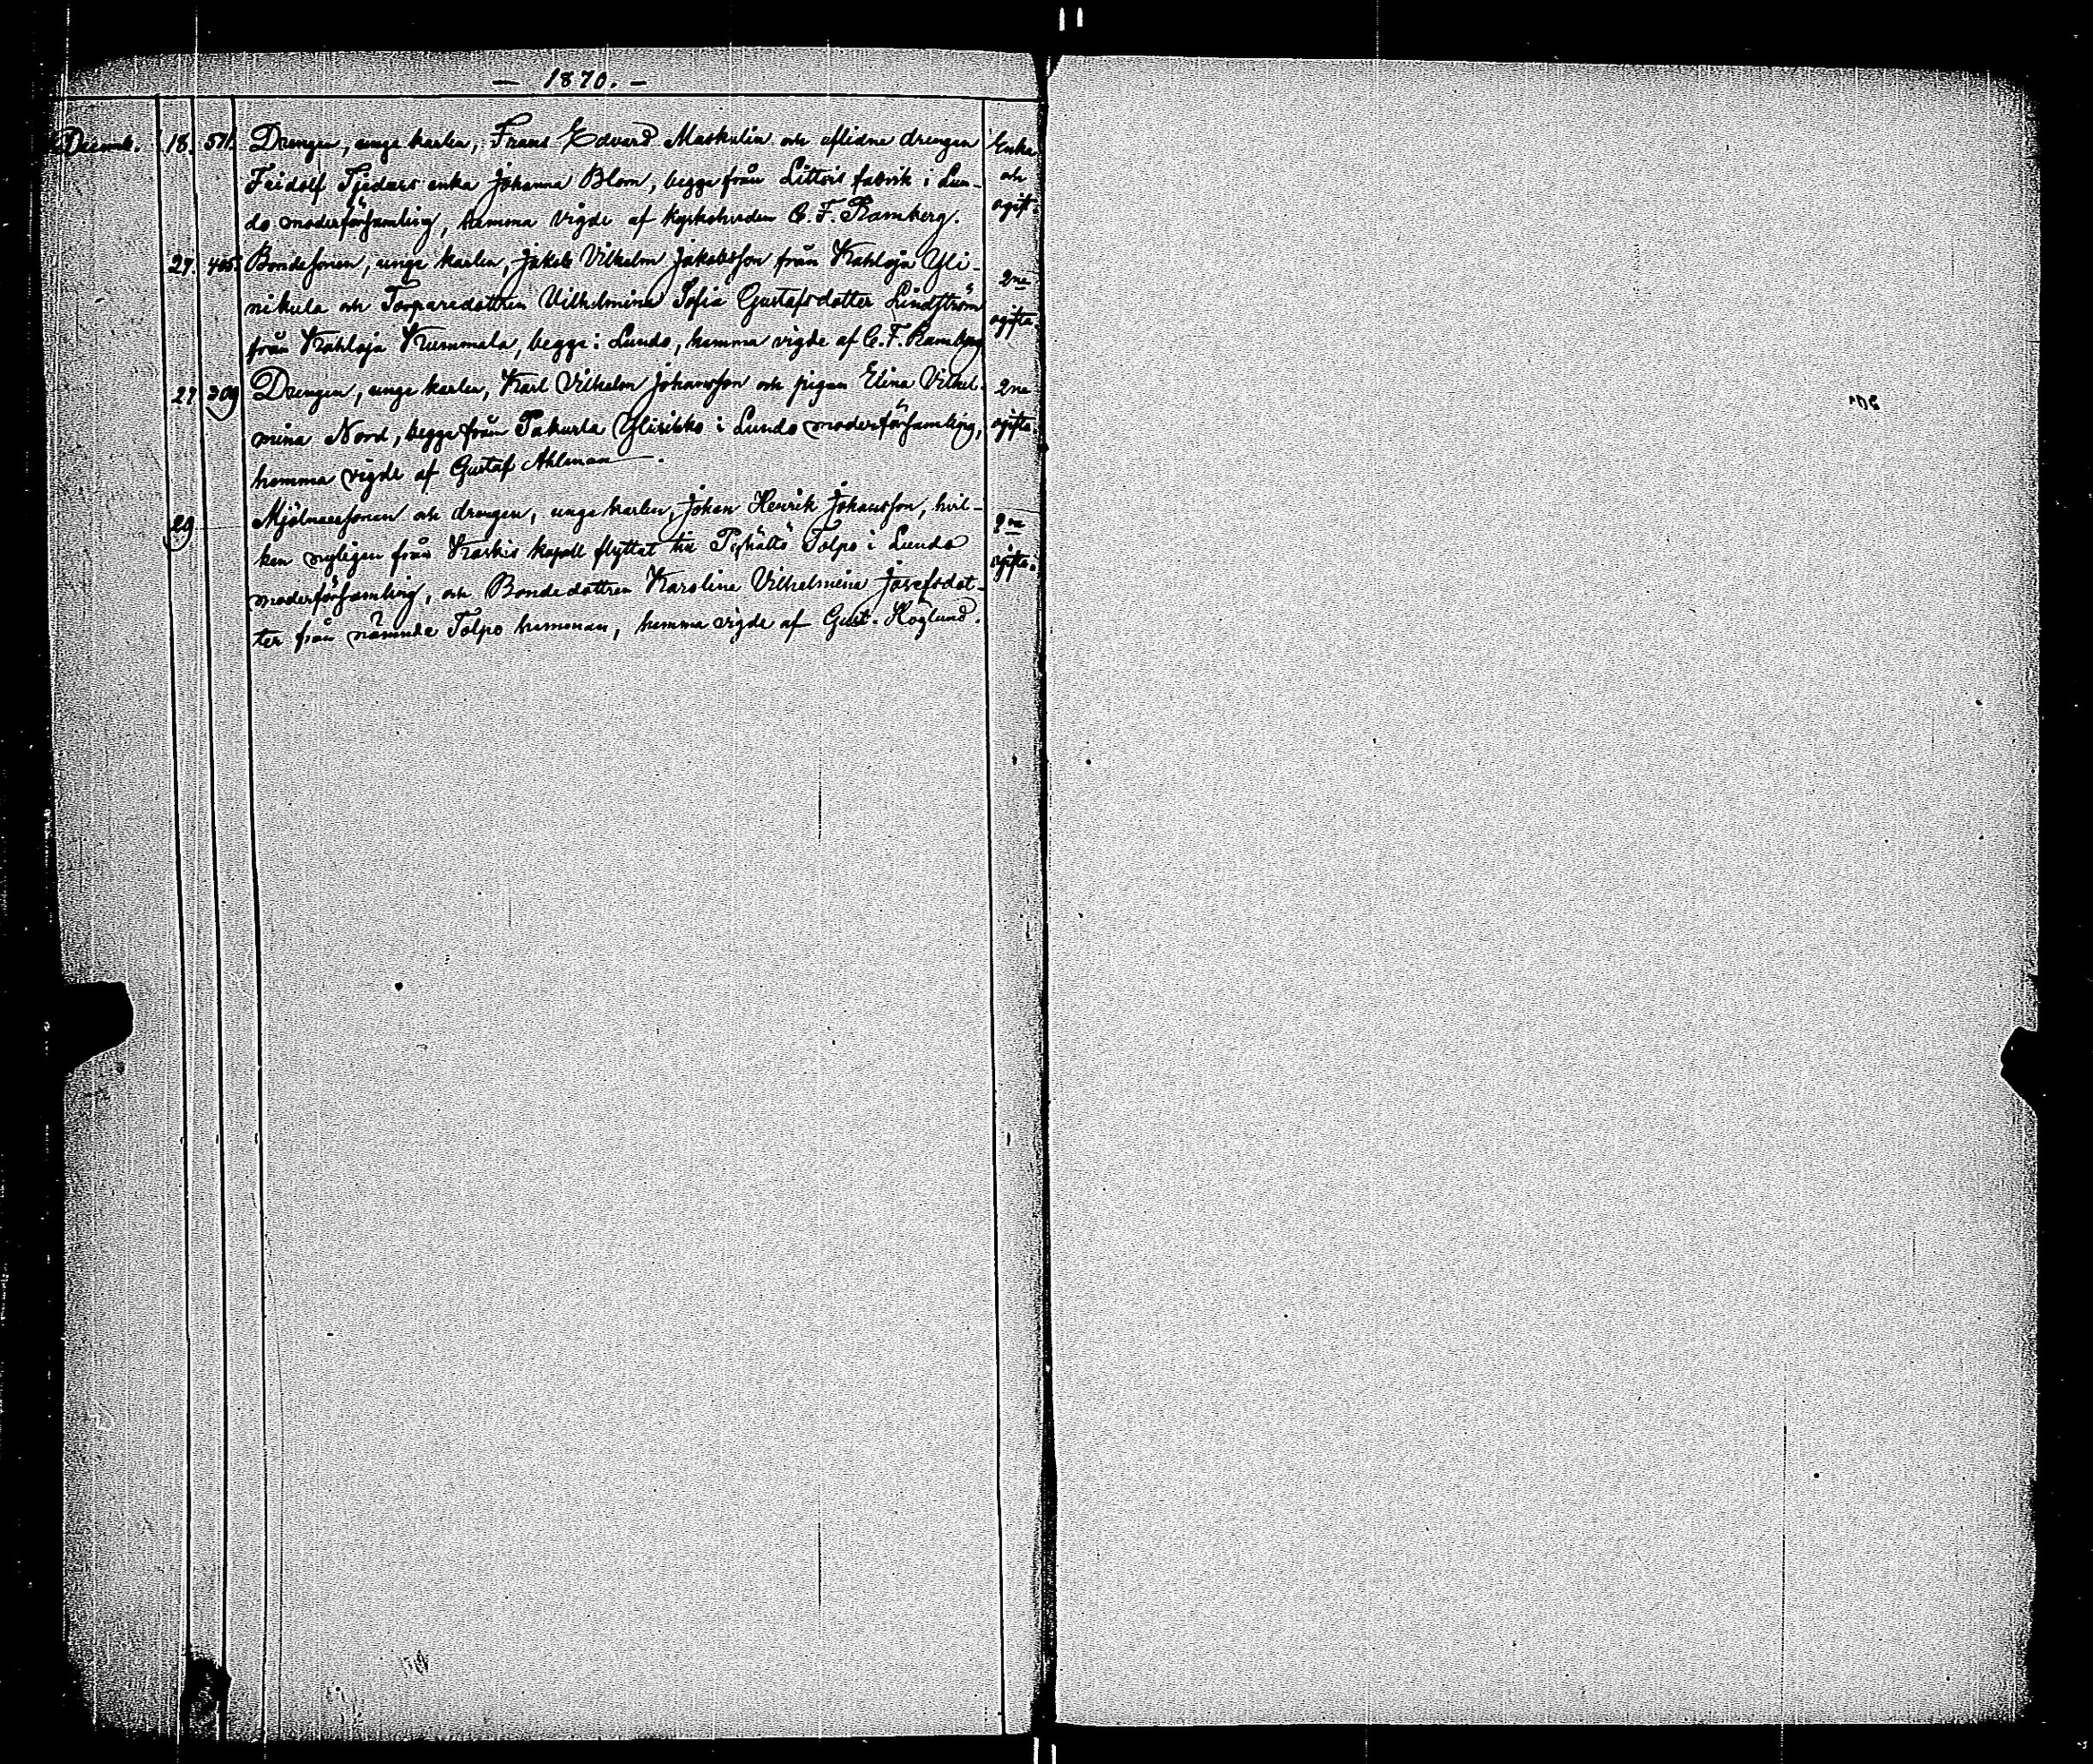 — 1870. —
Decemb. 18. 571. Drengen, unge karlen, Frans Edvard Maskulin och aflidne drengen Enka
Fridolf Tjeders enka Johanna Blom, begge från Littois fabrik i Lun- och
do moderförsamling, hemma vigde af kyrkoherden C. F. Ramberg. ogift.
27. 405. Bondesonen, unge karlen, Jakob Vilhelm Jakobsson från Kahloja Yli-
nikula och Torparedottren Vilhelmina Sofia Gustafsdotter Lindström 2ne
från Kahloja Krummala, begge i Lundo, hemma vigde af C. F. Ramberg ogifta.
27. 309 Drengen, unge karlen, Karl Vilhelm Johansson och pigan Elina Vilhel- 2ne
mina Nord, begge från Pakurla Ylisisko i Lundo moderförsamling, ogifta.
hemma vigde af Gustaf Ahlman.
29 Mjölnaresonen och drengen, unge karlen, Johan Henrik Johansson, hvil- 2ne
ken nyligen från Karkis kapell flyttat till Tolpo i Lundo ogifta.
moderförsamling, och Bondedottren Karolina Vilhelmina Josefsdot-
ter från nämnde Tolpo hemman, hemma vigde af Gust. Höglund.
201